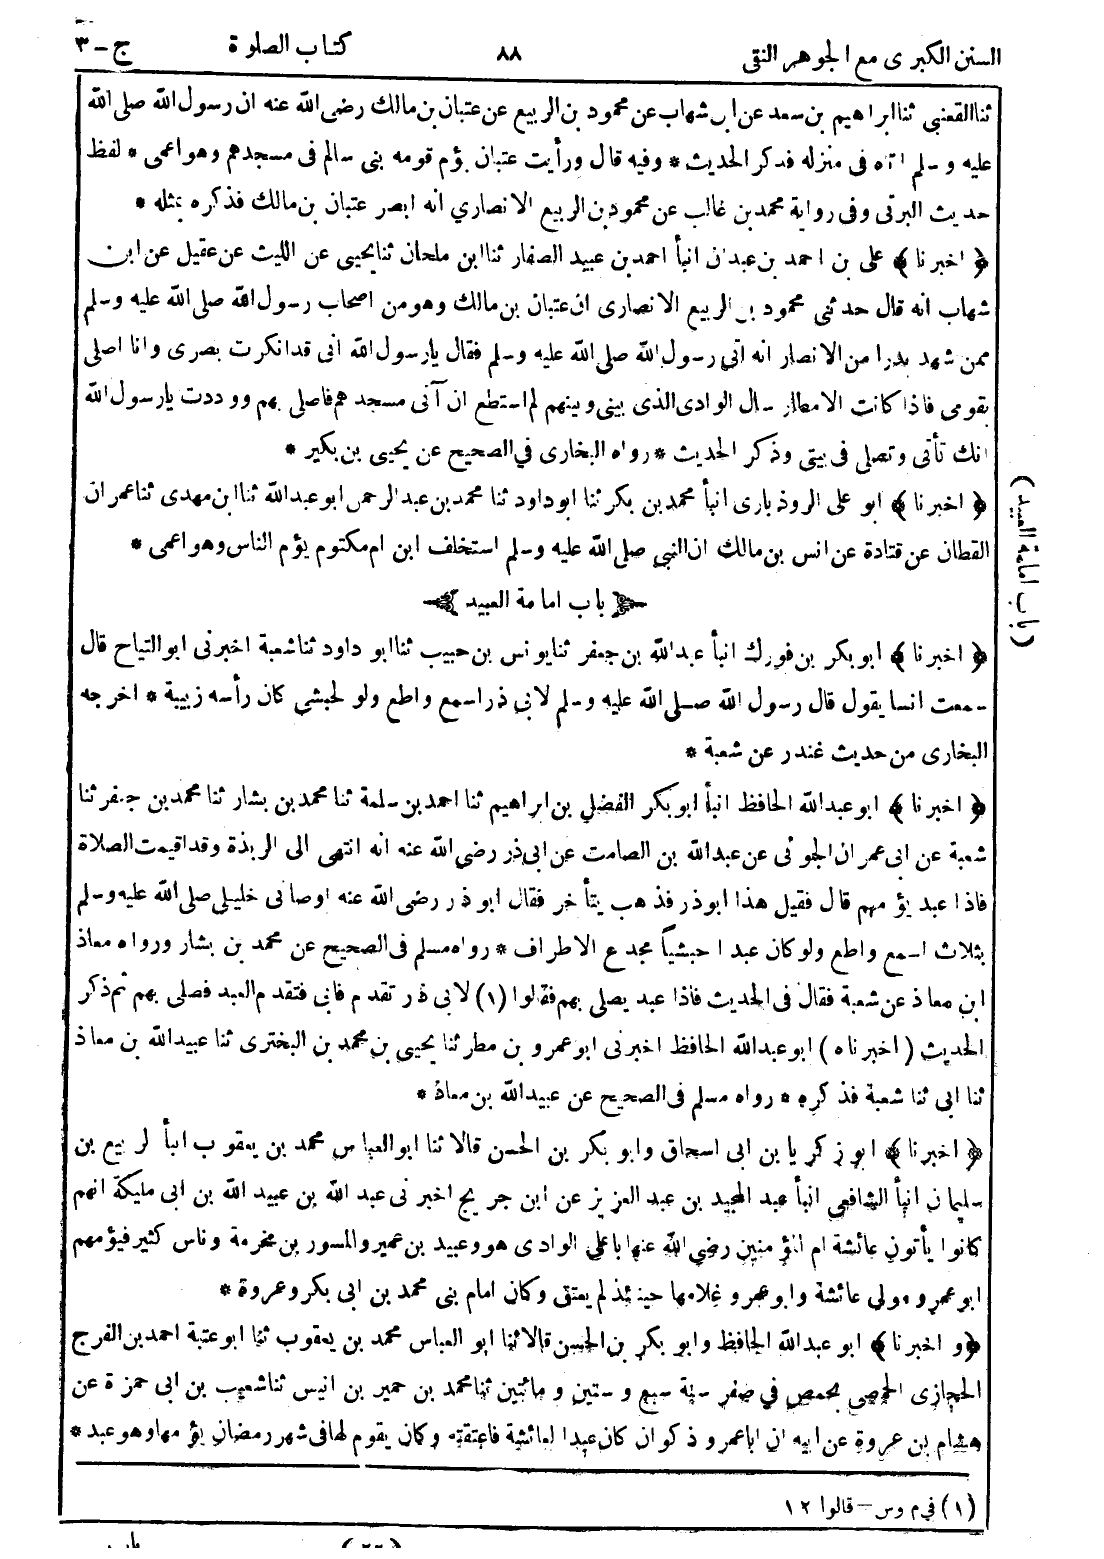 السنن الكبرى مع الجوهر النقى ٨٨ كتاب الصلوة ج-٣
ثنا القعنبي ثنا ابراهيم بن سعد عن ابن شهاب عن محمود بن الربيع عن عتبان بن مالك رضى الله عنه ان رسول الله صلى الله
عليه وسلم اتاه فى منزله فذكر الحديث * وفيه قال ورأيت عتبان يؤم قومه بنى سالم فى مسجدهم وهو اعمى * لفظ
حديث البرتى وفى رواية محمد بن غالب عن محمود بن الربيع الانصاري انه ابصر عتبان بن مالك فذكره بمثله *
﴿ اخبرنا ﴾ على بن احمد بن عبدان انبأ احمد بن عبيد الصفار ثنا ابن ملحان ثنا يحيى عن الليث عن عقيل عن ابن
شهاب انه قال حدثنى محمود بن الربيع الانصارى ان عتبان بن مالك وهو من اصحاب رسول الله صلى الله عليه وسلم
ممن شهد بدرا من الانصار انه اتى رسول الله صلى الله عليه وسلم فقال يا رسول الله انى قد انكرت بصرى وانا اصلى
بقومى فاذا كانت الامطار سال الوادى الذى بينى وبينهم لم استطع ان آتى مسجدهم فاصلى بهم ووددت يا رسول الله
انك تأتى وتصلى فى بيتى وذكر الحديث * رواه البخارى في الصحيح عن يحيى بن بكير *
﴿ اخبرنا ﴾ ابو على الروذبارى انبأ محمد بن بكر ثنا ابو داود ثنا محمد بن عبد الرحمن ابو عبد الله ثنا ابن مهدى ثنا عمران
القطان عن قتادة عن انس بن مالك ان النبي صلى الله عليه وسلم استخلف ابن ام مكتوم يؤم الناس وهو اعمى *
باب امامة العبيد
(باب امامة العبيد)
﴿ اخبرنا ﴾ ابو بكر بن فورك انبأ عبد الله بن جعفر ثنا يونس بن حبيب ثنا ابو داود ثنا شعبة اخبرنى ابو التياح قال
سمعت انسا يقول قال رسول الله صلى الله عليه وسلم لابي ذر اسمع واطع ولو لحبشي كان رأسه زبيبة * اخرجه
البخارى من حديث غندر عن شعبة *
﴿ اخبرنا ﴾ ابو عبد الله الحافظ انبأ ابو بكر الفضل بن ابراهيم ثنا احمد بن سلمة ثنا محمد بن بشار ثنا محمد بن جعفر ثنا
شعبة عن ابى عمران الجونى عن عبد الله بن الصامت عن ابى ذر رضى الله عنه انه انتهى الى الربذة وقد اقيمت الصلاة
فاذا عبد يؤمهم قال فقيل هذا ابو ذر فذهب يتأخر فقال ابو ذر رضى الله عنه اوصانى خليلى صلى الله عليه وسلم
بثلاث اسمع واطع ولو كان عبدا حبشياً مجدع الاطراف * رواه مسلم فى الصحيح عن محمد بن بشار ورواه معاذ
ابن معاذ عن شعبة فقال فى الحديث فاذا عبد يصلى بهم فقالوا (١) لابى ذر تقدم فابى فتقدم العبد فصلى بهم ثم ذكر
الحديث ( اخبرناه ) ابو عبد الله الحافظ اخبرنى ابو عمرو بن مطر ثنا يحيى بن محمد بن البخترى ثنا عبيد الله بن معاذ
ثنا ابى ثنا شعبة فذكره * رواه مسلم فى الصحيح عن عبيد الله بن معاذ *
﴿ اخبرنا ﴾ ابو زكريا بن ابى اسحاق وابو بكر بن الحسن قالا ثنا ابو العباس محمد بن يعقوب انبأ الربيع بن
سليمان انبأ الشافعى انبأ عبد المجيد بن عبد العزيز عن ابن جريج اخبرنى عبد الله بن عبيد الله بن ابى مليكة انهم
كانوا يأتون عائشة ام المؤمنين رضى الله عنها باعلى الوادى هو وعبيد بن عمير والمسور بن مخرمة وناس كثير فيؤمهم
ابو عمرو مولى عائشة وابو عمرو غلامها حينئذ لم يعتق وكان امام بنى محمد بن ابى بكر وعروة *
﴿ و اخبرنا ﴾ ابو عبد الله الحافظ وابو بكر بن الحسن قالا ثنا ابو العباس محمد بن يعقوب ثنا ابو عتبة احمد بن الفرج
الحجازى الحمصي بحمص في صفر سنة سبع وستين ومائتين ثنا محمد بن حمير بن انيس ثنا شعيب بن ابى حمزة عن
هشام بن عروة عن ابيه ان ابا عمرو ذكوان كان عبدا لعائشة فاعتقته وكان يقوم لها فى شهر رمضان يؤمها وهو عبد *
(١) في م وس - قالوا ١٢